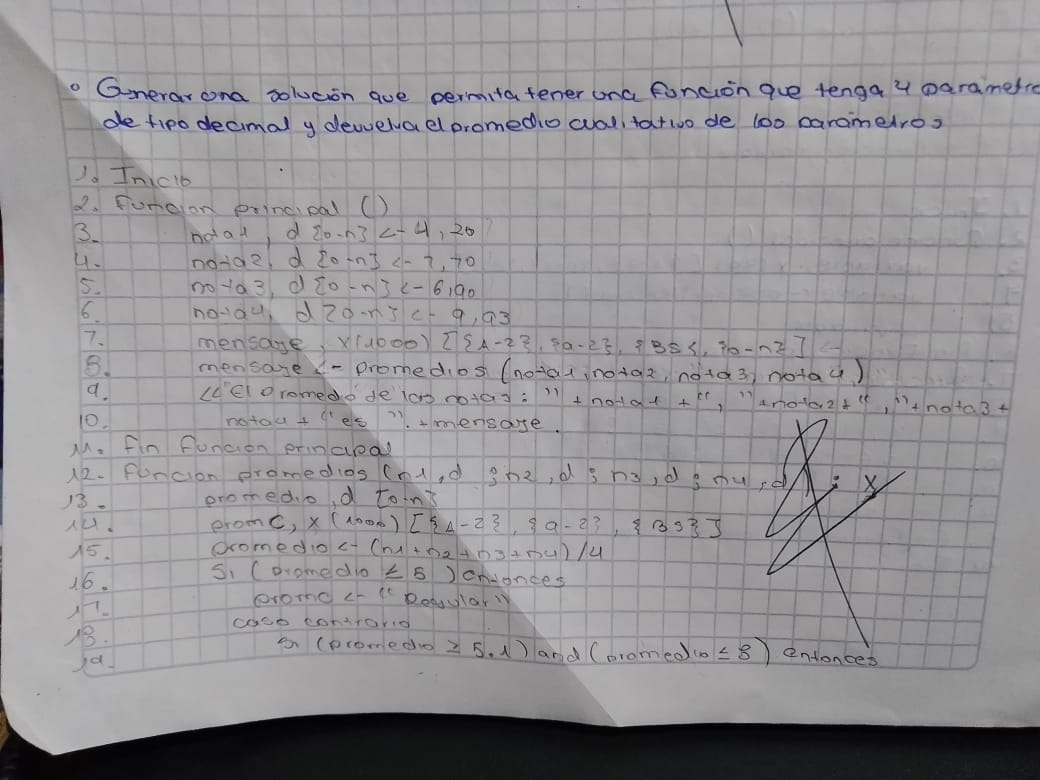 • Generar una solución que permita tener una función que tenga 4 parámetro
de tipo decimal y devuelva el promedio cualitativo de los parámetros
1. Inicio
2. Función principal ()
3. nota1, d {0-n} <- 4,20
4. nota2, d {0-n} <- 7,70
5. nota3, d {0-n} <- 6,90
6. nota4, d {0-n} <- 9,93
7. mensaje, x(1000) [{A-Z}, {a-z}, {BS}, {0-n}] <-
8. mensaje <- promedios (nota1, nota2, nota3, nota4)
9. << "El promedio de las notas: " + nota1 + ", " + nota2 + ", " + nota3 +
10. nota4 + "es ". + mensaje.
11. Fin Función principal
12. Función promedios (n1, d ; n2, d ; n3, d ; n4, d) : x
13. promedio, d {0-n}
14. promC, x (1000) [{A-Z}, {a-z}, {BS}]
15. promedio <- (n1 + n2 + n3 + n4) /4
16. Si (promedio ≤ 5) entonces
17. promc <- "Regular"
18. caso contrario
19. si (promedio ≥ 5.1) and (promedio ≤ 8) entonces